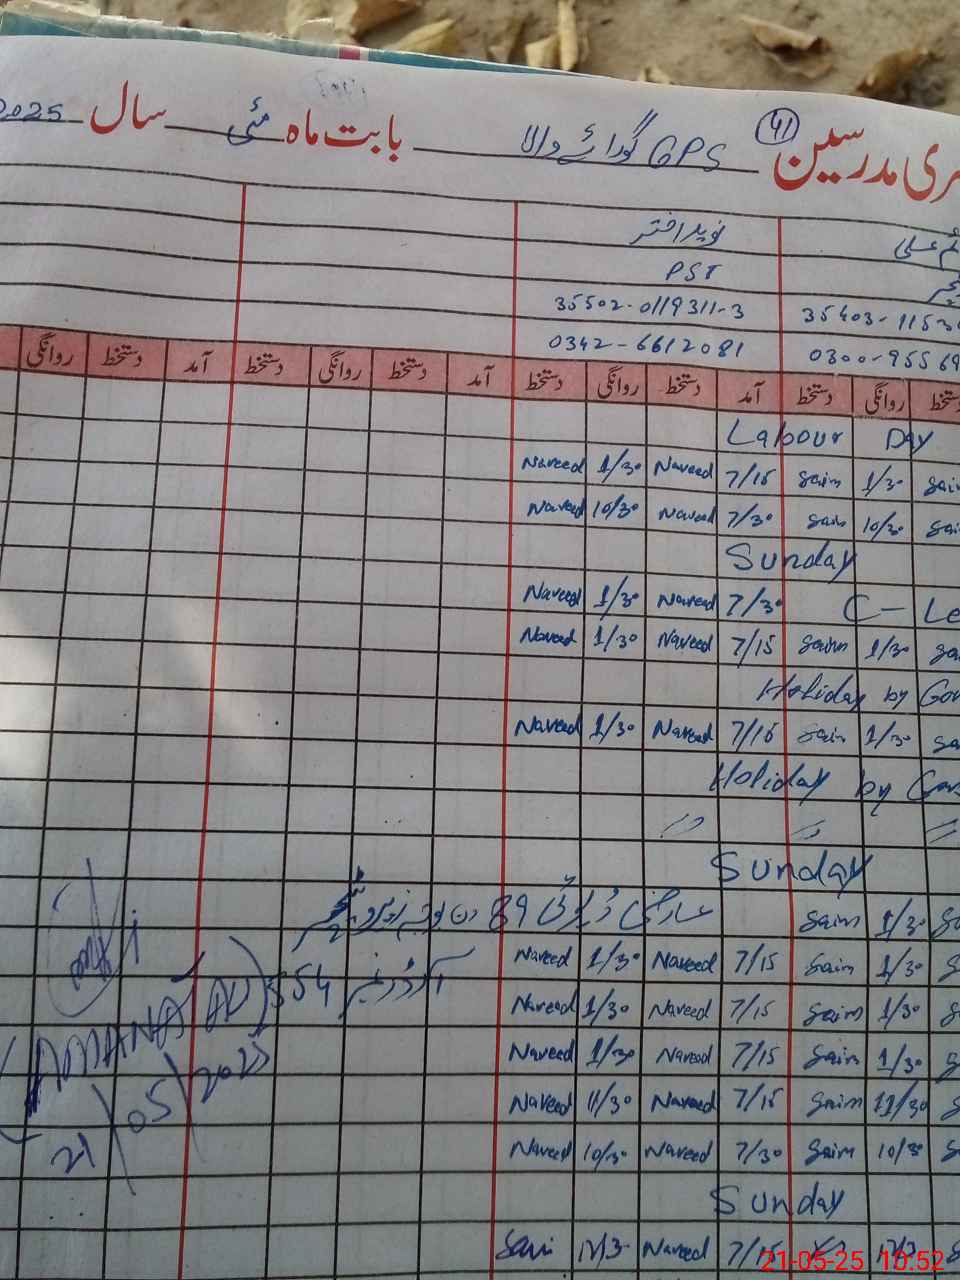 مدرسین (41) GPS گورائے والا بابت ماہ مئی سال 2025
نوید اختر
PST
35502-0119311-3 35403-1153
0342-6612081 0300-9556
دستخط روانگی دستخط آمد دستخط روانگی دستخط آمد دستخط روانگی دستخط آمد دستخط روانگی
Labour Day
Saim 1/30 Saim 7/15 Naveed 1/30 Naveed
Saim 10/30 Saim 7/30 Naveed 10/30 Naveed
Sunday
C-Le 7/30 Naveed 1/30 Naveed
Saim 1/30 Saim 7/15 Naveed 1/30 Naveed
Holiday by Gov
1/30 Saim 7/15 Naveed 1/30 Naveed
Holiday by Gov
〃 〃 〃
Sunday
1/30 Saim عارضی ڈیوٹی 89 دن
1/30 Saim 7/15 Naveed 1/30 Naveed آرڈر نمبر 354
1/30 Saim 7/15 Naveed 1/30 Naveed
1/30 Saim 7/15 Naveed 1/30 Naveed
11/30 Saim 7/15 Naveed 11/30 Naveed
10/30 Saim 7/30 Naveed 10/30 Naveed
Sunday
7/15 Naveed
(AMANAT ALI)
21/05/2025
21-05-25 10:52